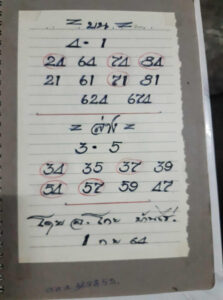 = บน =
4 - 1
24 64 74 84
21 61 71 81
624 674
= ล่าง =
3 - 5
34 35 37 39
54 57 59 47
โดย อ.
1 กพ 64